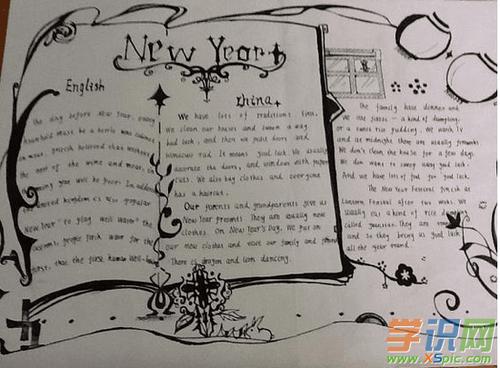 New Year
English
The day before New Year, every
household must be a bottle wine cabinet
in meat. British believed that without
the rest of the wine and meat, in
coming year will be poor. In addition
the United Kingdom is also popular
New Year " to plug well water " the
customs people for the
first, that the first human well-being
China
We have lots of traditions. First,
we clean our houses and sweep away
bad luck, and then we paste doors and
windows red. It means good luck. We usually
decorate the doors and windows with paper
cuts. We also buy clothes and everyone
has a haircut.
Our parents and grandparents give us
New Year presents. They are usually new
clothes. On New Year's Day, we put on
our new clothes and visit our family and friends
There is dragon and lion dancing.
The family have dinner and
we use jiaozi — a kind of dumpling,
or a sweet rice pudding. We watch TV
and at midnight there are usually fireworks
We don't clean the house for a few days.
We don want to sweep away good luck.
And we have lots of food for good luck.
The New Year Festival finish at
Lantern Festival after two weeks. We
usually eat a kind of rice
called yuanxiao. They are
and so they bring us good luck
all the year round.
学识网
www.XSpic.com